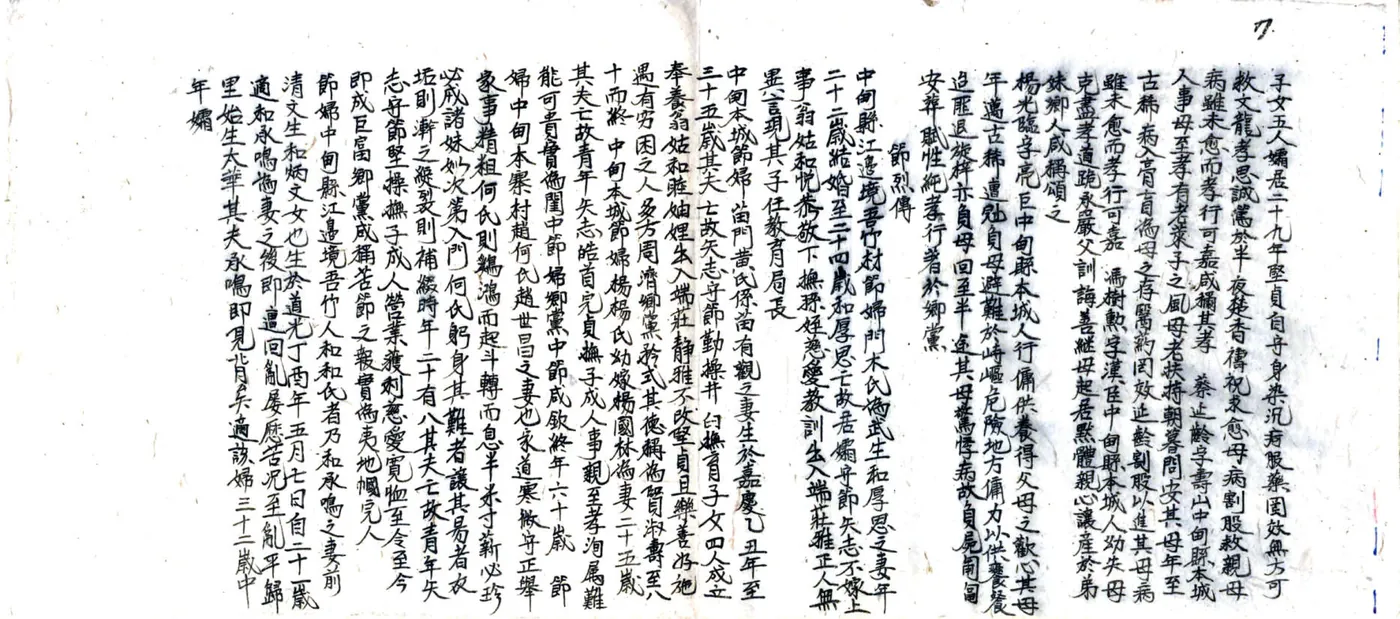 7
子女五人孀居二十九年堅貞自守身染沉疴服藥罔效無方可
救文龍孝思誠篤於半夜楚香禱祝求愈母病割股救親母
病雖未愈而孝行可嘉咸稱其孝 蔡正齡字壽山中甸縣本城
人事母至孝有老萊子之風母老扶持朝暮問安其母年至
古稀病入膏肓為母之存醫藥罔效正齡割股以進其母病
雖未愈而孝行可嘉 馮樹勲字漢臣中甸縣本城人幼失母
克盡孝道跪承嚴父訓誨善繼母起居默體親心讓產於弟
妹鄉人咸稱頌之
楊光臨字亮臣中甸縣本城人行傭供養得父母之歡心其母
年邁古稀遭寇負母避難於崎嶇危險地方傭力以供饔餐
迨匪退旋梓亦負母回至半途其母驚悸病故負屍開匐
安葬賦性純孝行著於鄉黨
節烈傳
中甸縣江邊境吾竹村節婦門木氏為武生和厚恩之妻年
二十二歲結婚至二十四歲和厚恩亡故居孀守節矢志不嫁上
事翁姑和悅恭敬下撫孫姪慈愛教訓出入端莊雅正人無
異言現其子任教育局長
中甸本城節婦苗門黄氏係苗有觀之妻生於嘉慶乙丑年至
三十五歲其夫亡故矢志守節勤操井臼撫育子女四人成立
奉養翁姑和睦妯娌出入端莊靜雅不改堅貞且樂善好施
遇有穷困之人多方周濟鄉黨矜式其德稱為賢淑壽至八
十而終 中甸本城節婦楊楊氏幼嫁楊國林為妻二十五歲
其夫亡故青年矢志皓首完貞撫子成人事親至孝洵属難
能可貴實為閨中節婦鄉黨中節咸欽終年六十歲 節
婦中甸本寨村趙何氏趙世昌之妻也家道寒微守正舉
家事精粗何氏則鷄鴻而起斗轉而息半米寸薪必珍
必咸諸妹妙次第入門何氏躬身其難者讓其易者衣
垢則澣之綻裂則補綴時年二十有八其夫亡故青年矢
志守節堅操撫子成人營業獲利慈愛寬恤至令至今
即成巨富鄉黨咸稱苦節之報實為夷地幗完人
節婦中甸縣江邊境吾竹人和和氏者乃和承鳴之妻前
清文生和炳文女也生於道光丁酉年五月七日自二十一歲
適和承鳴為妻之後即遭回亂屡厯苦况至亂平歸
里始生大華其夫承鳴即見背矣適該婦三十二歲中
年孀